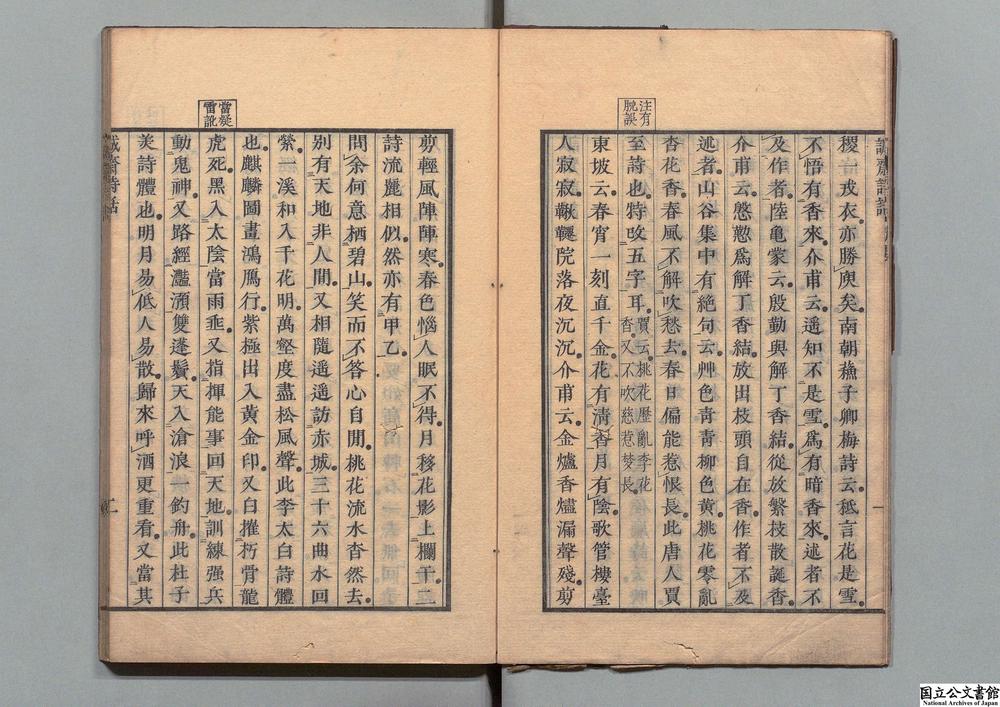 稷一戎衣亦勝庾矣南朝蘓子卿梅詩云秪言花是雪
不悟有香來介甫云遥知不是雪爲有暗香來述者不
及作者陸亀蒙云殷勤與解丁香結從放繁枝散誕香
介甫云慇懃爲解丁香結放出枝頭自在香作者不及
述者山谷集中有絕句云艸色青青柳色黄桃花零亂
杏花香春風不解吹愁去春日偏能惹恨長此唐人賈
注有
脫誤
至詩也特改五字耳賈云桃花歷亂李花
香又不吹愁惹夢長
東坡云春宵一刻直千金花有清香月有陰歌管樓臺
人寂寂鞦韆院落夜沉沉介甫云金爐香燼漏聲殘剪
剪輕風陣陣寒春色惱人眠不得月移花影上欄干二
詩流麗相似然亦有甲乙
問余何意栖碧山笑而不答心自閒桃花流水杳然去
別有天地非人間又相隨遥遥訪赤城三十六曲水回
縈一溪和入千花明萬壑度盡松風聲此李太白詩體
也麒麟圖畫鴻鴈行紫極出入黄金印又白摧朽骨龍
當疑
雷訛
虎死黑入太陰當雨垂又指揮能事回天地訓練强兵
動鬼神又路經灩澦雙蓬鬢天入滄浪一釣舟此杜子
美詩體也明月易低人易散歸來呼酒更重看又當其
誠齋詩話
二
国立公文書館
National Archives of Japan